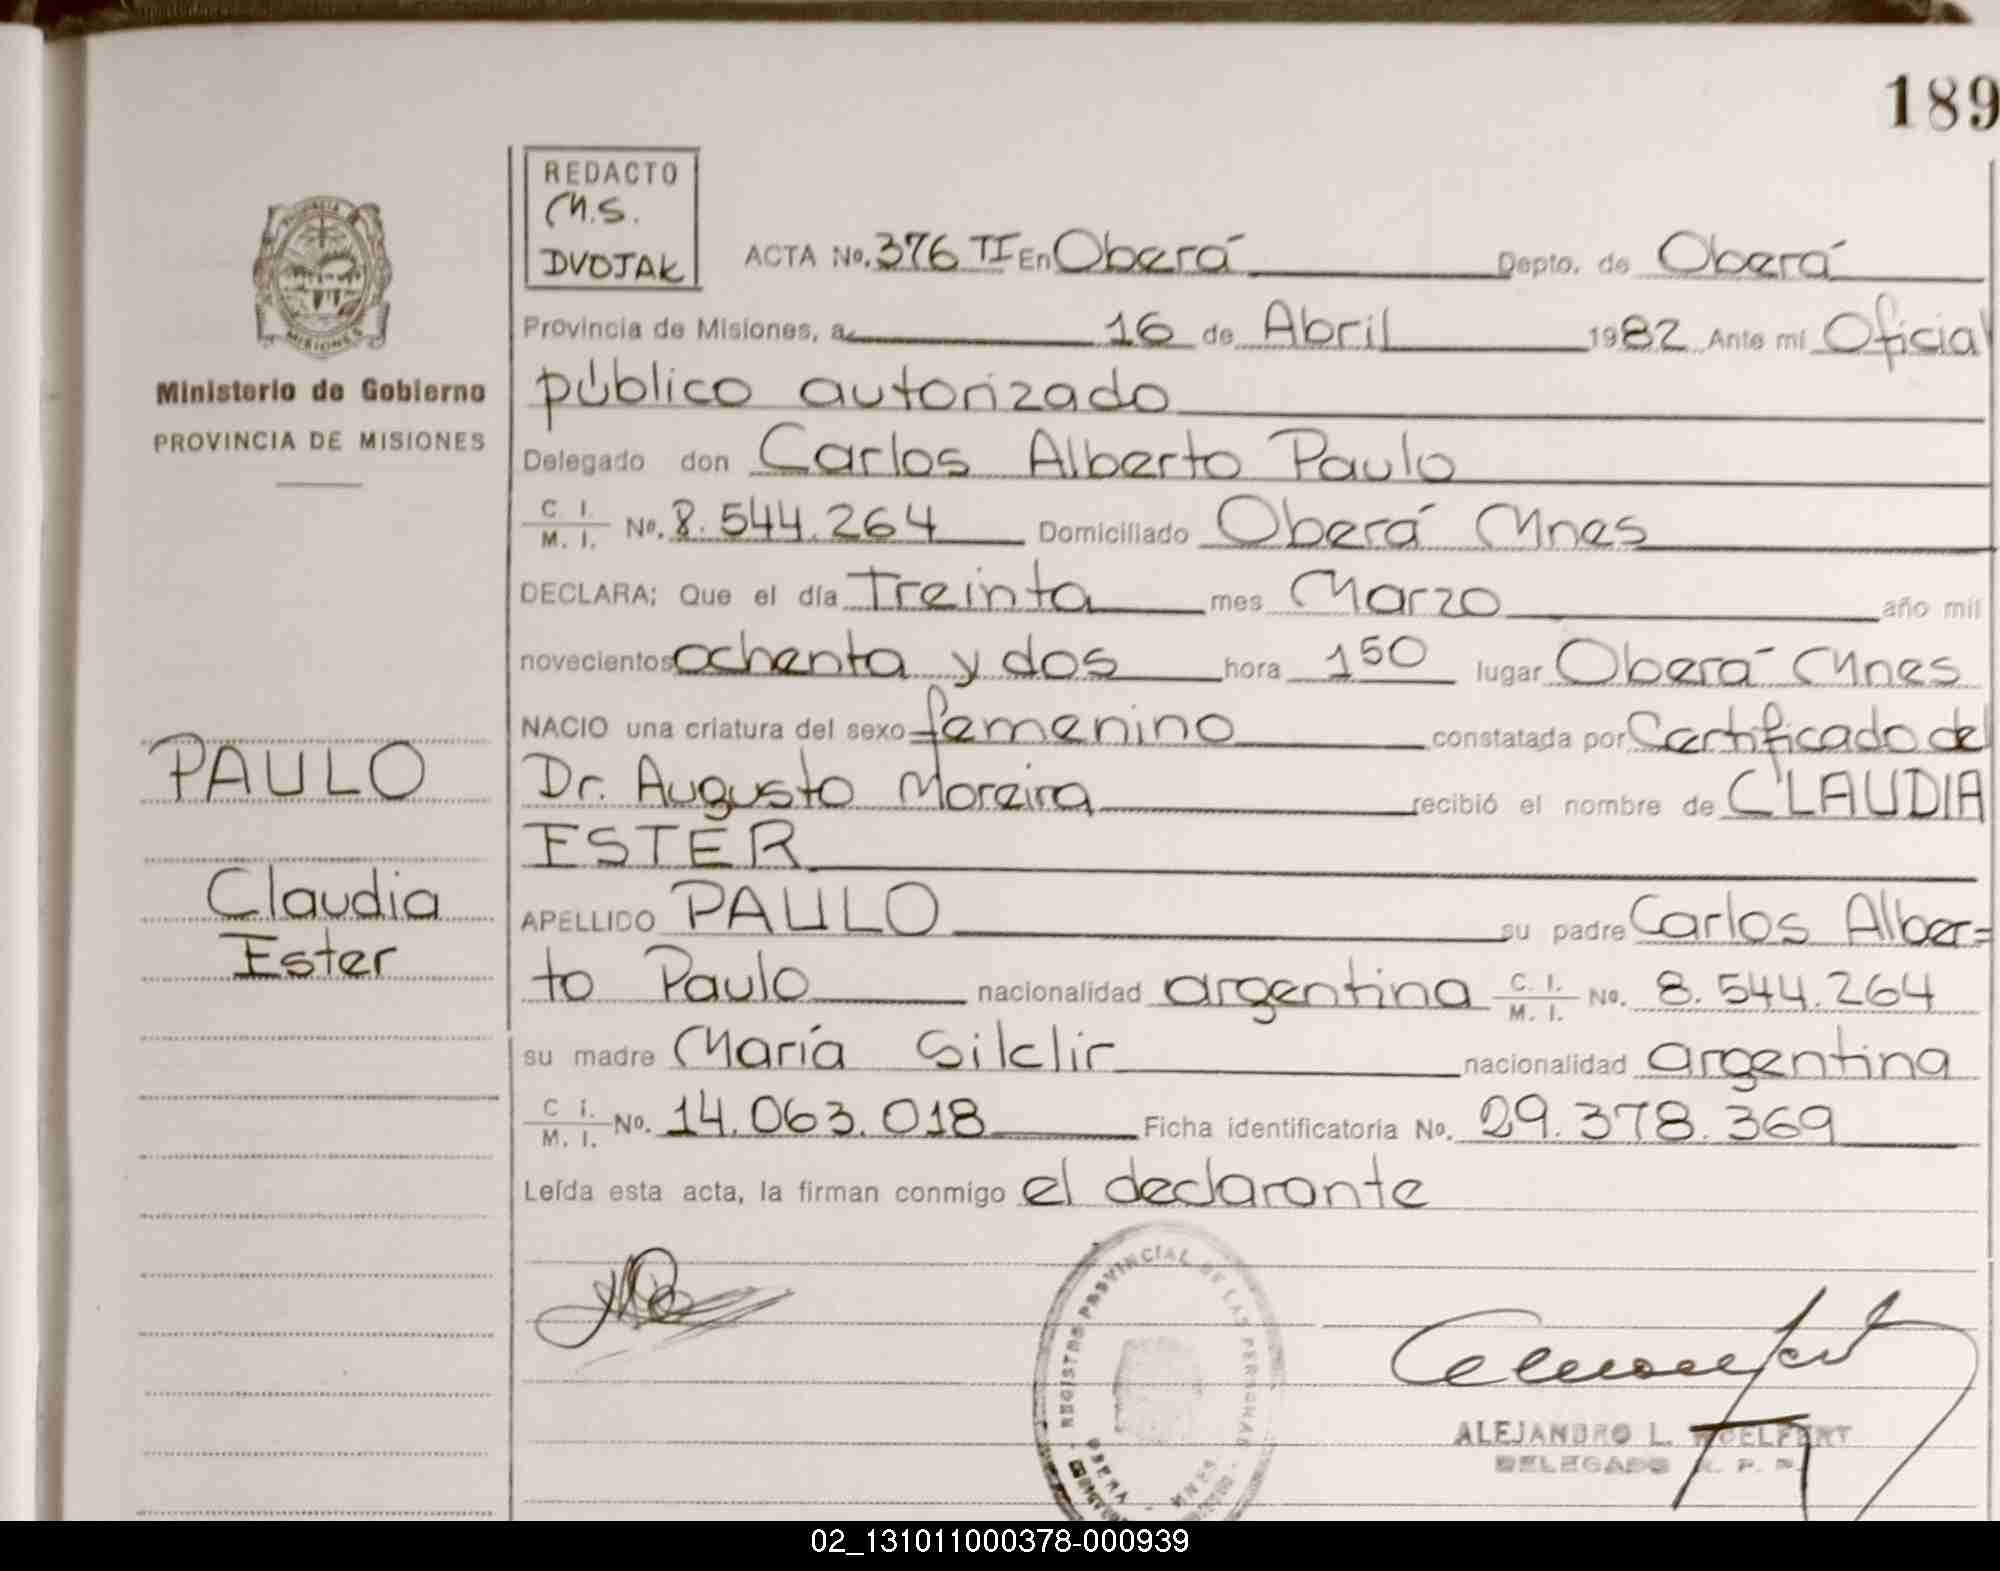 189
REDACTO
M.S.
DVOJAK
ACTA No. 376 TI En Oberá Depto. de Oberá
Provincia de Misiones, a 16 de Abril 1982 Ante mí Oficial
público autorizado
Delegado don Carlos Alberto Paulo
C. I. / M. I. No. 8.544.264 Domiciliado Oberá Mnes
DECLARA; Que el día Treinta mes Marzo año mil
novecientos ochenta y dos hora 1 50 lugar Oberá Mnes
NACIO una criatura del sexo femenino constatada por Certificado del
Dr. Augusto Moreira recibió el nombre de CLAUDIA
ESTER
APELLIDO PAULO su padre Carlos Alber=
to Paulo nacionalidad argentina C. I. / M. I. No. 8.544.264
su madre María Silclir nacionalidad argentina
C. I. / M. I. No. 14.063.018 Ficha identificatoria No. 29.378.369
Leída esta acta, la firman conmigo el declarante
PROVINCIA DE
MISIONES
Ministerio de Gobierno
PROVINCIA DE MISIONES
PAULO
Claudia
Ester
REGISTRO PROVINCIAL DE LAS PERSONAS
OBERA
MNES
ALEJANDRO L.
DELEGADO R. P. P.
02_131011000378-000939